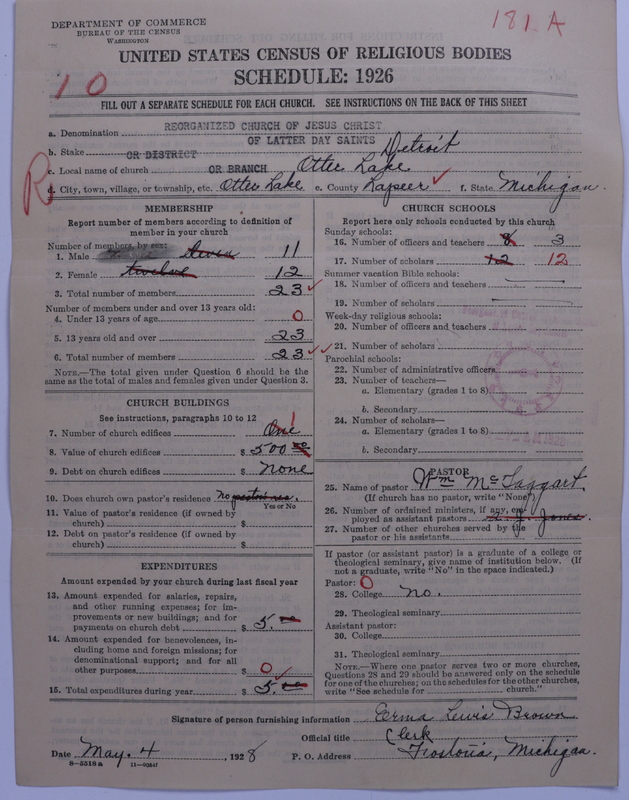 DEPARTMENT OF COMMERCE
BUREAU OF THE CENSUS
WASHINGTON
181 A
UNITED STATES CENSUS OF RELIGIOUS BODIES
SCHEDULE: 1926
10
FILL OUT A SEPARATE SCHEDULE FOR EACH CHURCH. SEE INSTRUCTIONS ON THE BACK OF THIS SHEET
a. Denomination REORGANIZED CHURCH OF JESUS CHRIST
OF LATTER DAY SAINTS
b. Stake OR DISTRICT Detroit
c. Local name of church OR BRANCH Otter Lake
R
d. City, town, village, or township, etc. Otter Lake e. County Lapeer f. State Michigan.
MEMBERSHIP
Report number of members according to definition of
member in your church
Number of members, by sex:
1. Male 11
2. Female twelve 12
3. Total number of members 23
Number of members under and over 13 years old:
4. Under 13 years of age 0
5. 13 years old and over 23
6. Total number of members 23
NOTE.—The total given under Question 6 should be
same as the total of males and females given under Question 3.
CHURCH BUILDINGS
See instructions, paragraphs 10 to 12
7. Number of church edifices One 1
8. Value of church edifices $ 500 00
9. Debt on church edifices $ none
10. Does church own pastor's residence? no pastors res.
Yes or No
11. Value of pastor's residence (if owned by
church) $
12. Debt on pastor's residence (if owned by
church) $
EXPENDITURES
Amount expended by your church during last fiscal year
13. Amount expended for salaries, repairs,
and other running expenses; for im-
provements or new buildings; and for
payments on church debt $ 5. 00
14. Amount expended for benevolences, in-
cluding home and foreign missions; for
denominational support; and for all
other purposes $ 0
15. Total expenditures during year $ 5. 00
CHURCH SCHOOLS
Report here only schools conducted by this church
Sunday schools:
16. Number of officers and teachers 8 3
17. Number of scholars 12 12
Summer vacation Bible schools:
18. Number of officers and teachers
19. Number of scholars
Week-day religious schools:
20. Number of officers and teachers
21. Number of scholars
Parochial schools:
22. Number of administrative officers
23. Number of teachers—
a. Elementary (grades 1 to 8)
b. Secondary
24. Number of scholars—
a. Elementary (grades 1 to 8)
b. Secondary
PASTOR
25. Name of pastor Wm McTaggart
(If church has no pastor, write "None")
26. Number of ordained ministers, if any, em-
ployed as assistant pastors
27. Number of other churches served by the
pastor or his assistants
If pastor (or assistant pastor) is a graduate of a college or
theological seminary, give name of institution below. (If
not a graduate, write "No" in the space indicated.)
Pastor: 0
28. College no.
29. Theological seminary
Assistant pastor:
30. College
31. Theological seminary
NOTE.—Where one pastor serves two or more churches,
Questions 28 and 29 should be answered only on the schedule
for one of the churches; on the schedules for the other churches,
write "See schedule for church."
Signature of person furnishing information Erma Lewis Brown
Official title Clerk
Date May. 4, 1928 P. O. Address Fostoria, Michigan.
8-5518a 11-9354f